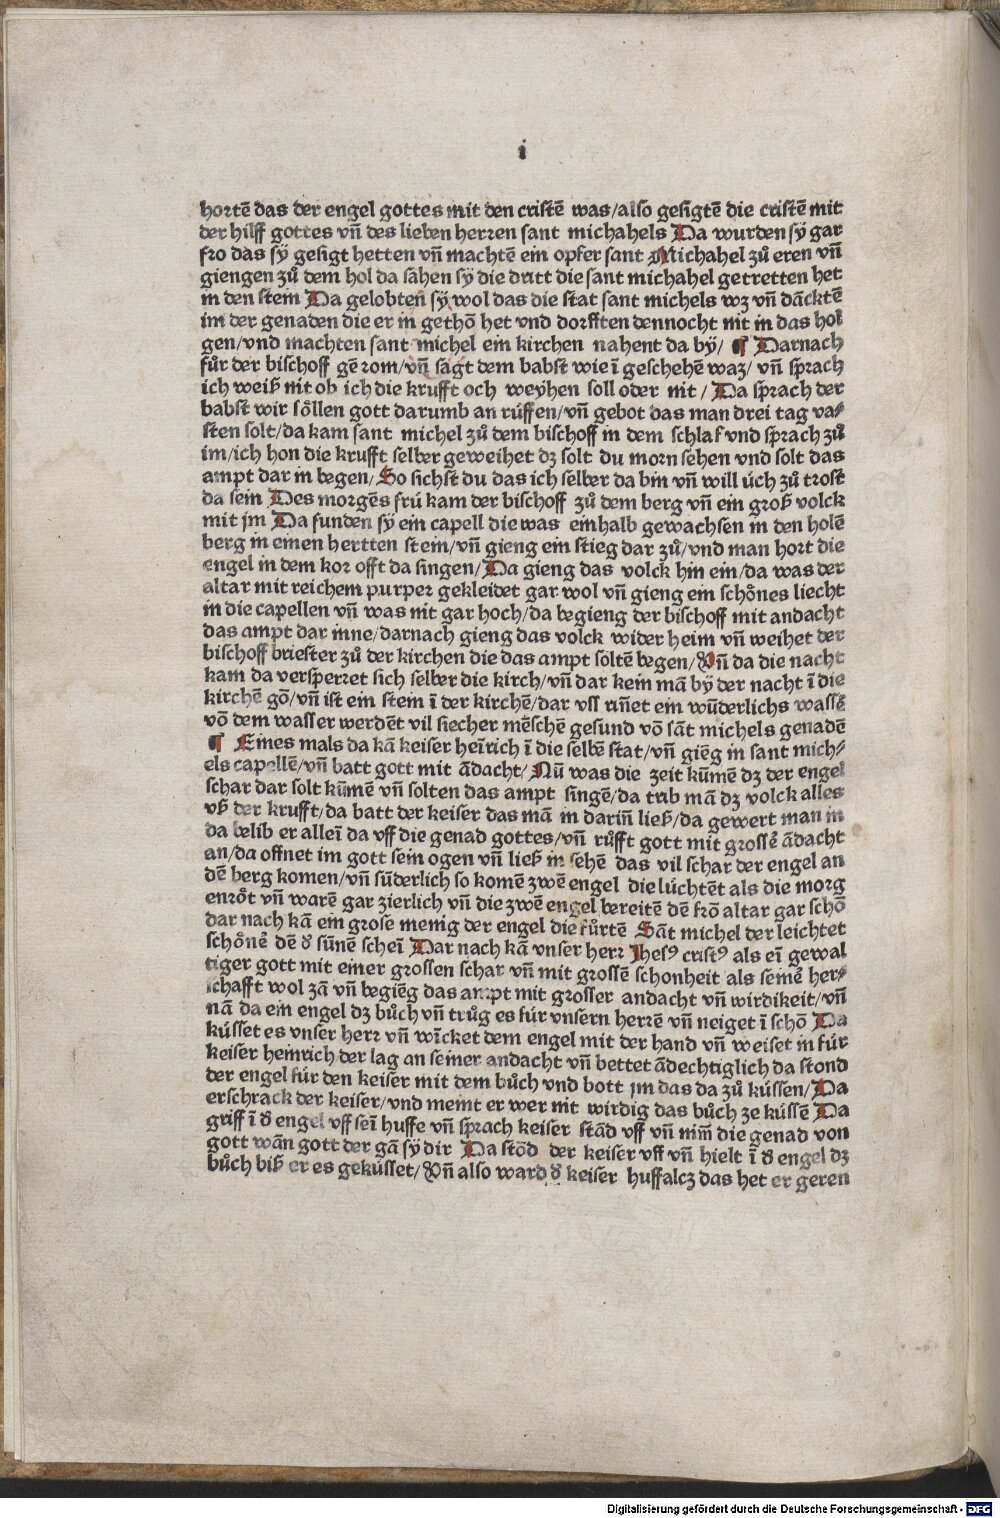 i
hortē das der engel gottes mit den cristē was/also gesigtē die cristē mit
der hilff gottes vn̄ des lieben herren sant michahels Da wurden sÿ gar
fro das sÿ gesigt hetten vn̄ machtē ein opfer sant Michahel zů eren vn̄
giengen zů dem hol da sahen sÿ die dritt die sant michahel getretten het
in den stein Da gelobten sÿ wol das die stat sant michels wz vn̄ dācktē
im der genaden die er in gethō het vnd dorfften dennocht nit in das hol
gen/vnd machten sant michel ein kirchen nahent da bÿ/ ¶ Darnach
fůr der bischoff gē rom/vn̄ sagt dem babst wie ī geschehē waz/ vn̄ sprach
ich weiß nit ob ich die krufft och weyhen soll oder nit/ Da sprach der
babst wir söllen gott darumb an rüffen/vn̄ gebot das man drei tag va⸗
sten solt/da kam sant michel zů dem bischoff in dem schlaf vnd sprach zů
im/ich hon die krufft selber geweihet dz solt du morn sehen vnd solt das
ampt dar in begen/So sichst du das ich selber da bin vn̄ will üch zů trost
da sein Des morgēs frů kam der bischoff zů dem berg vn̄ ein groß volck
mit jm Da funden sÿ ein capell die was einhalb gewachsen in den holē
berg in einen hertten stein/vn̄ gieng ein stieg dar zů/vnd man hort die
engel in dem kor offt da singen/Da gieng das volck hin ein/da was der
altar mit reichem purper gekleidet gar wol vn̄ gieng ein schönes liecht
in die capellen vn̄ was nit gar hoch/da begieng der bischoff mit andacht
das ampt dar inne/darnach gieng das volck wider heim vn̄ weihet der
bischoff briester zů der kirchen die das ampt soltē begen/Vn̄ da die nacht
kam da versperret sich selber die kirch/vn̄ dar kein mā bÿ der nacht ī die
kirchē gō/vn̄ ist ein stein ī der kirchē/dar vss riñet ein wūderlichs wassē
vō dem wasser werdēt vil siecher mēschē gesund vō sāt michels genadē
¶ Eines mals da kā keiser heīrich ī die selbē stat/vn̄ giēg in sant mich⸗
els capellē/vn̄ batt gott mit ādacht/Nū was die zeit kūmē dz der engel
schar dar solt kūmē vn̄ solten das ampt singē/da trib mā dz volck alles
vß der krufft/da batt der keiser das mā in dariñ ließ/da gewert man in
da belib er alleī da vff die genad gottes/vn̄ růfft gott mit grossē ādacht
an/da offnet im gott sein ogen vn̄ ließ in sehē das vil schar der engel an
dē berg komen/vn̄ sūderlich so komē zwē engel die lüchtēt als die morg
enröt vn̄ warē gar zierlich vn̄ die zwē engel bereitē dē frō altar gar schō
dar nach kā ein grose menig der engel die fůrtē Sāt michel der leichtet
schönē dē d̕ sūnē scheī Dar nach kā vnser herr Jhesꝰ cristꝰ als eī gewal
tiger gott mit einer grossen schar vn̄ mit grossē schonheit als seinē her⸗
schafft wol zā vn̄ begiēg das ampt mit grosser andacht vn̄ wirdikeit/vn̄
nā da ein engel dz bůch vn̄ trůg es für vnsern herrē vn̄ neiget ī schō Da
küsset es vnser herr vn̄ wīcket dem engel mit der hand vn̄ weiset in für
keiser heinrich der lag an seiner andacht vn̄ bettet ādechtiglich da stond
der engel für den keiser mit dem bůch vnd bott jm das da zů küssen/Da
erschrack der keiser/vnd meint er wer nit wirdig das bůch ze küssē Da
griff ī d̕ engel vff seī huffe vn̄ sprach keiser stād vff vn̄ nim̄ die genad von
gott wān gott der gā sÿ dir Da stōd der keiser vff vn̄ hielt ī d̕ engel dz
bůch biß er es geküsset/Vn̄ also ward d̕ keiser huffalcz das het er geren
Digitalisierung gefördert durch die Deutsche Forschungsgemeinschaft - DFG